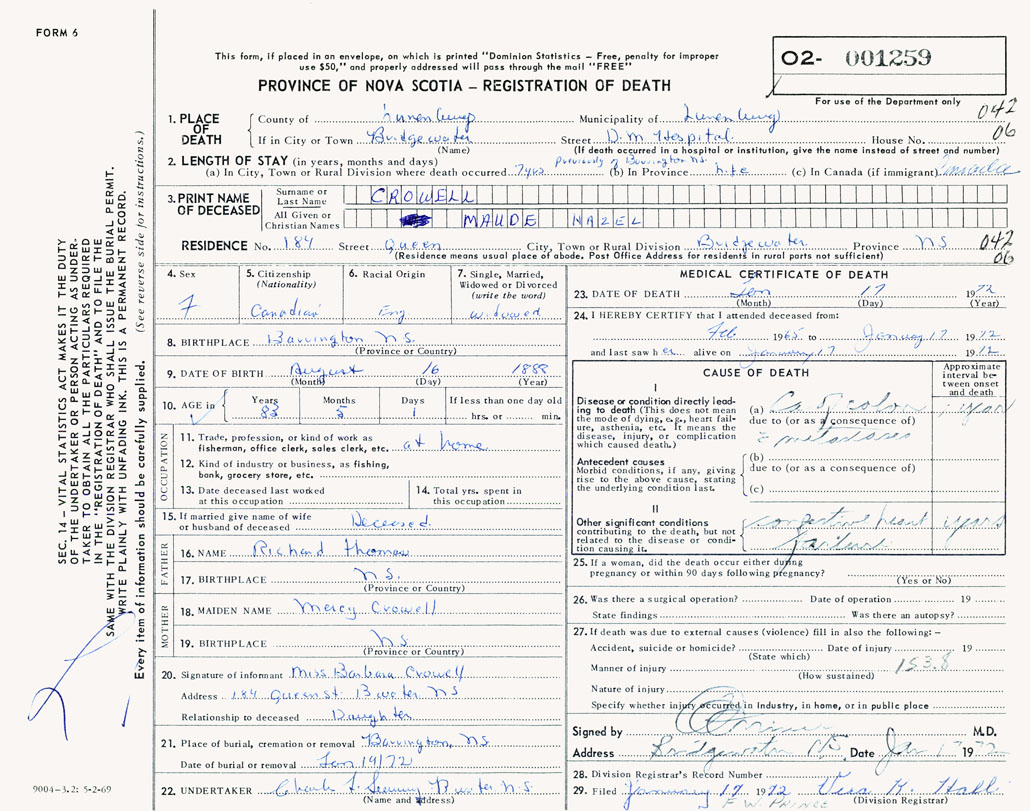 FORM 6
This form, if placed in an envelope, on which is printed "Dominion Statistics – Free, penalty for improper
use $50," and properly addressed will pass through the mail "FREE"
PROVINCE OF NOVA SCOTIA – REGISTRATION OF DEATH
02- 001259
For use of the Department only
042
06
1. PLACE OF DEATH
County of Lunenburg Municipality of Lunenburg
If in City or Town Bridgewater Street D.M. Hospital House No.
(Name) (If death occurred in a hospital or institution, give the name instead of street and number)
2. LENGTH OF STAY (in years, months and days) previously of Barrington N.S.
(a) In City, Town or Rural Division where death occurred 7 yrs. (b) In Province life (c) In Canada (if immigrant)
3. PRINT NAME OF DECEASED
Surname or Last Name CROWELL
All Given or Christian Names MAUDE HAZEL
RESIDENCE No. 184 Street Queen City, Town or Rural Division Bridgewater Province NS 042
(Residence means usual place of abode. Post Office Address for residents in rural parts not sufficient) 06
4. Sex
F
5. Citizenship
(Nationality)
Canadian
6. Racial Origin
Eng
7. Single, Married,
Widowed or Divorced
(write the word)
widowed
8. BIRTHPLACE Barrington N.S.
(Province or Country)
9. DATE OF BIRTH August 16 1888
(Month) (Day) (Year)
10. AGE in Years Months Days If less than one day old
83 5 1 hrs. or min.
OCCUPATION
11. Trade, profession, or kind of work as
fisherman, office clerk, sales clerk, etc. at home
12. Kind of industry or business, as fishing,
bank, grocery store, etc.
13. Date deceased last worked
at this occupation
14. Total yrs. spent in
this occupation
15. If married give name of wife
or husband of deceased Deceased
FATHER
16. NAME Richard Thomas
17. BIRTHPLACE N.S.
(Province or Country)
MOTHER
18. MAIDEN NAME Mercy Crowell
19. BIRTHPLACE N.S.
(Province or Country)
20. Signature of informant Miss Barbara Crowell
Address 184 Queen St. B'water NS
Relationship to deceased Daughter
21. Place of burial, cremation or removal Barrington, NS
Date of burial or removal Jan 19/72
22. UNDERTAKER B'water N.S.
(Name and address)
MEDICAL CERTIFICATE OF DEATH
23. DATE OF DEATH Jan 17 1972
(Month) (Day) (Year)
24. I HEREBY CERTIFY that I attended deceased from:
Feb 1965 to January 17 1972
and last saw her alive on January 17 1972
CAUSE OF DEATH
Approximate
interval be-
tween onset
and death
I
Disease or condition directly lead-
ing to death (This does not mean
the mode of dying, e.g., heart fail-
ure, asthenia, etc. It means the
disease, injury, or complication
which caused death.)
(a) Ca of colon 1 year
due to (or as a consequence of)
c̄ metastases
Antecedent causes
Morbid conditions, if any, giving
rise to the above cause, stating
the underlying condition last.
(b)
due to (or as a consequence of)
(c)
II
Other significant conditions
contributing to the death, but not
related to the disease or condi-
tion causing it.
congestive heart years
failure
25. If a woman, did the death occur either during
pregnancy or within 90 days following pregnancy?
(Yes or No)
26. Was there a surgical operation? Date of operation 19
State findings Was there an autopsy?
27. If death was due to external causes (violence) fill in also the following: –
Accident, suicide or homicide? Date of injury 19
(State which)
Manner of injury 153.8
(How sustained)
Nature of injury
Specify whether injury occurred in Industry, in home, or in public place
Signed by M.D.
Address Bridgewater NS Date Jan 17 1972
28. Division Registrar's Record Number
29. Filed January 17 1972 Vera K. Hall
F. W. PRINCE (Division Registrar)
SEC. 14 – VITAL STATISTICS ACT MAKES IT THE DUTY
OF THE UNDERTAKER OR PERSON ACTING AS UNDER-
TAKER TO OBTAIN ALL THE PARTICULARS REQUIRED
IN THE "REGISTRATION OF DEATH" AND TO FILE THE
SAME WITH THE DIVISION REGISTRAR WHO SHALL ISSUE THE BURIAL PERMIT.
WRITE PLAINLY WITH UNFADING INK. THIS IS A PERMANENT RECORD.
Every item of information should be carefully supplied. (See reverse side for instructions.)
9004-3.2: 5-2-69